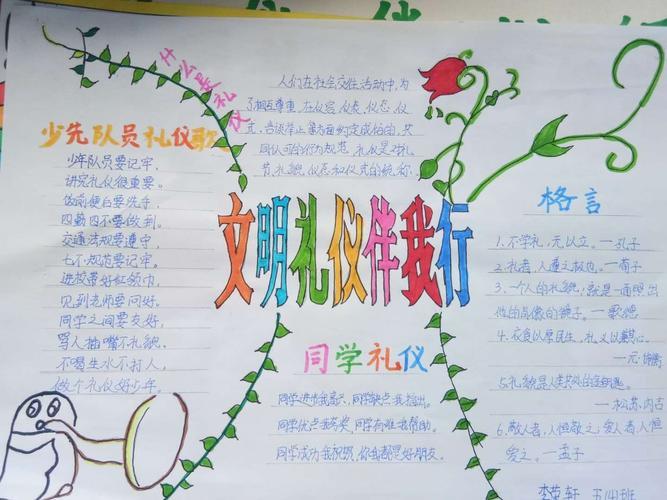 什么是礼仪
人们在社会交往活动中,为
了相互尊重,在仪容,仪表,仪态,仪
式,言谈举止等方面约定成俗的,共
同认可的行为规范,礼仪是对礼
节,礼貌,仪态和仪式的统称
少先队员礼仪歌
少年队员要记牢,
讲究礼仪很重要。
饭前便后要洗手
四勤四不要做到。
交通法规要遵守
七不规范要记牢。
进校带好红领巾
见到老师要问好。
同学之间要友好,
骂人抽嘴不礼貌,
不喝生水不打人,
做个礼仪好少年。
文明礼仪伴我行
格言
1.不学礼,无以立。—孔子
2.礼者,人道之极也。—荀子
3.一个人的礼貌,就是一面照出
他的肖像的镜子。—歌德
4.衣食以厚民生,礼义以养其心。
—元 许衡
5.礼貌是人类共处的金钥匙。
—松苏内吉
6.敬人者,人恒敬之,爱人者人恒
爱之。—孟子
同学礼仪
同学进步我高兴,同学缺点我指出。
同学优点我夸奖,同学有难我帮助。
同学成功我祝贺,你我都是好朋友。
轩 五(4)班